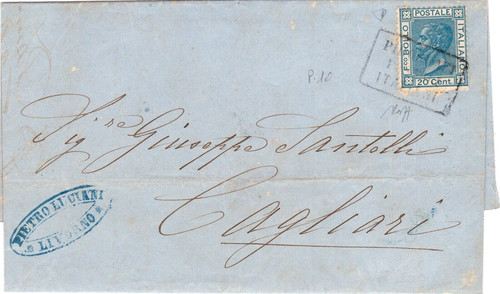 POSTALE
FCO BOLLO
ITALIANO
20 Cent.
P.10
Sig.re Giuseppe Santelli
Cagliari
PIETRO LUCIANI
LIVORNO